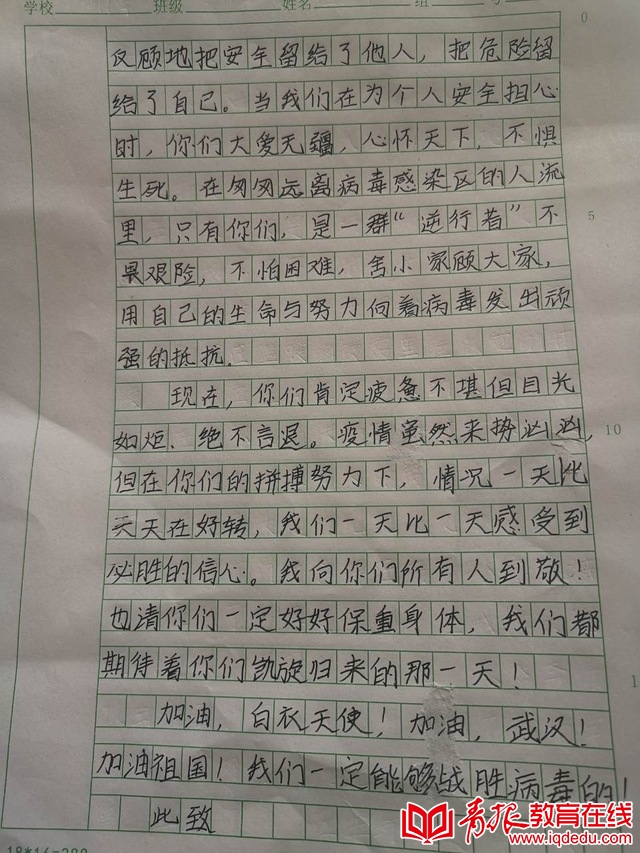 学校 班级 姓名 组
0
反顾地把安全留给了他人，把危险留
给了自己。当我们在为个人安全担心
时，你们大爱无疆，心怀天下，不惧
生死。在匆匆远离病毒感染区的人流
里，只有你们，是一群“逆行者”不
5
畏艰险，不怕困难，舍小家顾大家，
用自己的生命与努力向着病毒发出顽
强的抵抗.
现在，你们肯定疲惫不堪但目光
如炬、绝不言退。疫情虽然来势汹汹，
10
但在你们的拼搏努力下，情况一天比
天天在好转，我们一天比一天感受到
必胜的信心。我向你们所有人到敬！
也清你们一定好好保重身体，我们都
期待着你们凯旋归来的那一天！
加油，白衣天使！加油，武汉！
加油祖国！我们一定能够战胜病毒的！
此致
青报教育在线
www.iqdedu.com